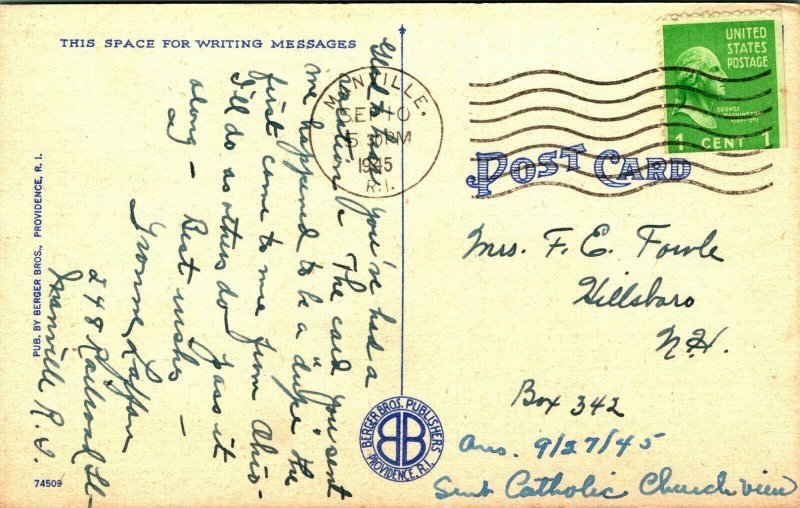 THIS SPACE FOR WRITING MESSAGES
Glad to hear you've had a
vacation. The card you sent
me happened to be a "dupe" the
first come to me from Ohio-
I'll do as others do pass it
along - Best wishes -
Yvonne Laffan
248 Railroad St-
Manville R.I.
PUB. BY BERGER BROS., PROVIDENCE, R. I.
74509
MANVILLE.
SEP 10
5 30 PM
1945
R.I.
BERGER BROS. PUBLISHERS
BB
PROVIDENCE, R.I.
UNITED
STATES
POSTAGE
GEORGE
WASHINGTON
1 CENT 1
POST CARD
Mrs. F. E. Fowle
Hillsboro
N.H.
Box 342
Ans. 9/27/45
Sent Catholic Church view